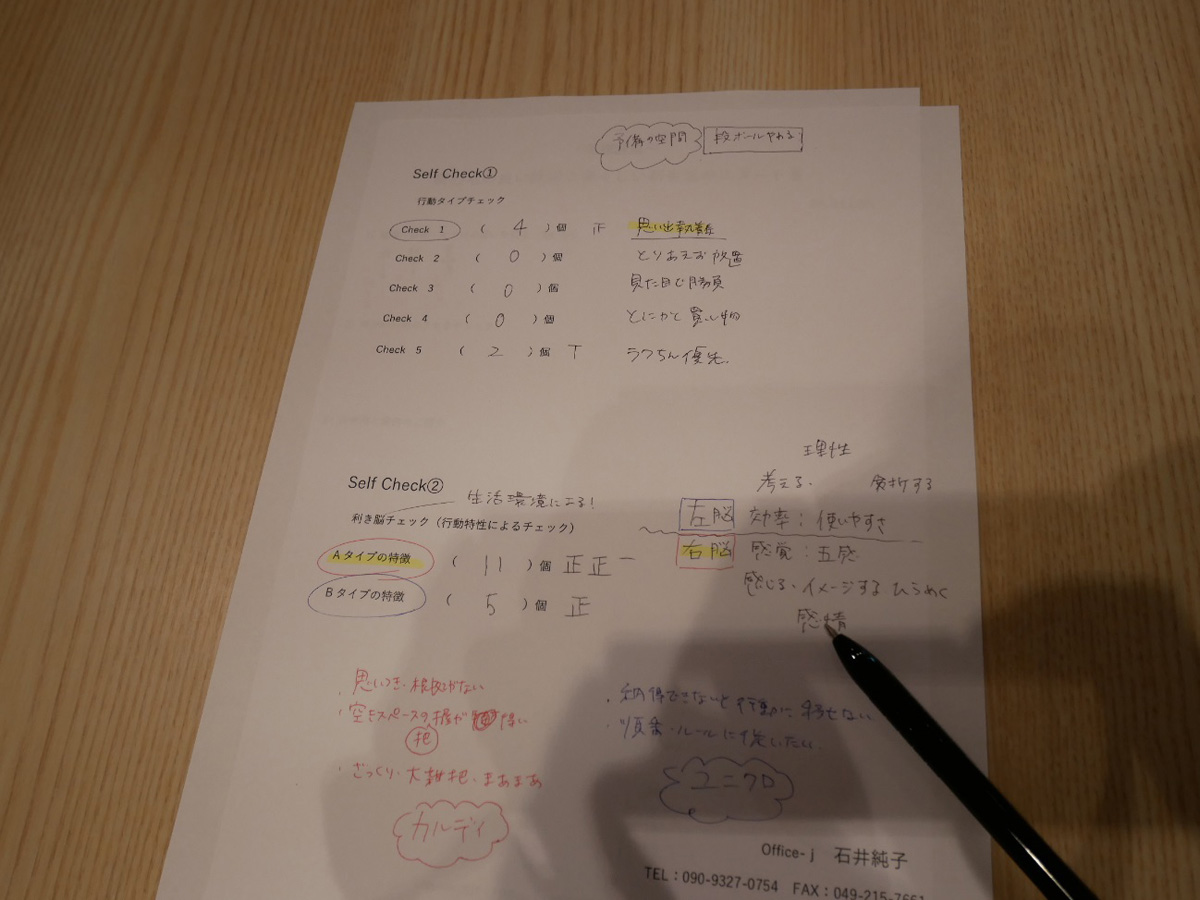 予備の空間 段ボールやめる!
Self Check①
行動タイプチェック
Check 1 ( 4 )個 正 思い出執着
Check 2 ( 0 )個 とりあえず放置
Check 3 ( 0 )個 見た目で勝負
Check 4 ( 0 )個 とにかく買い物
Check 5 ( 2 )個 T ラクちん優先.
理性
考える・
Self Check② 生活環境による!
左脳 効率:使いやすさ
利き脳チェック(行動特性によるチェック)
右脳 感覚:五感
Aタイプの特徴 ( 11 )個 正正一
感じる・イメージする ひらめく
Bタイプの特徴 ( 5 )個 正
感情
・思いつき・根拠がない
・空きスペースの握が 得い
把
・ざっくり・大雑把・まあまあ
カルディ
・納得できないと行動に移せない
・順番・ルールに従いたい.
ユニクロ
Office-j 石井純子
TEL:090-9327-0754 FAX:049-215-7661